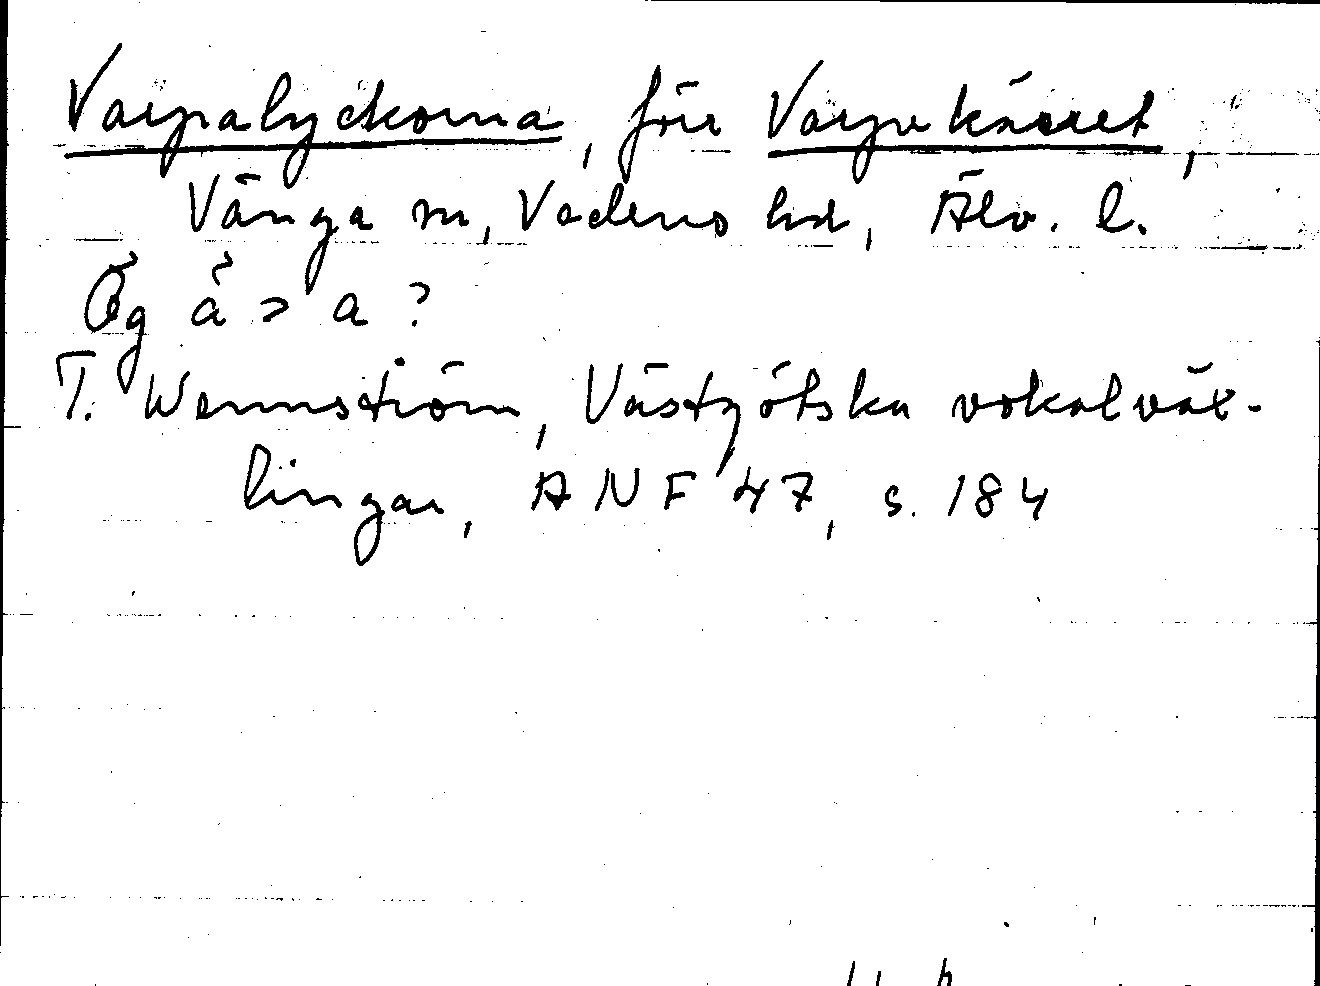 Varpalyckorna, för Varpekärret,
Vånga sn, Vedens hd, Älv. l.
Ög ä > a ?
T. Wennström, Västgötska vokalväx-
lingar, ANF 47, s. 184